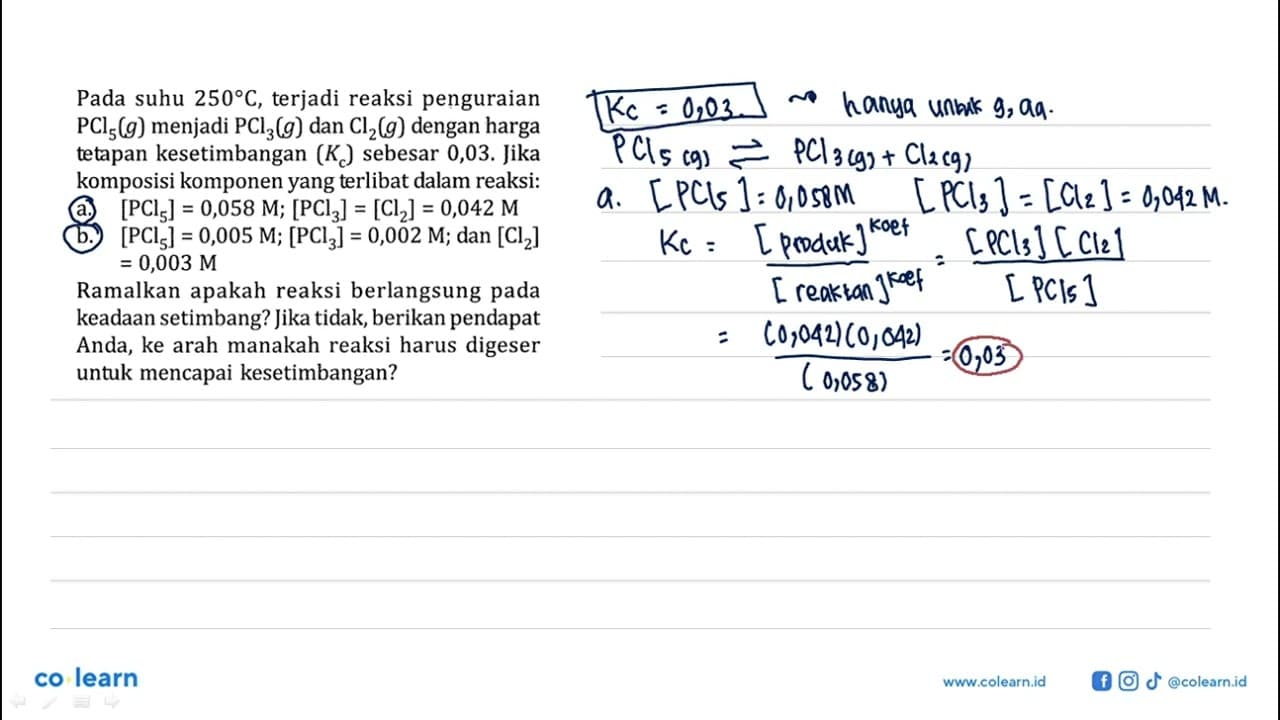 Pada suhu 250°C, terjadi reaksi penguraian
PCl₅(g) menjadi PCl₃(g) dan Cl₂(g) dengan harga
tetapan kesetimbangan (K_c) sebesar 0,03. Jika
komposisi komponen yang terlibat dalam reaksi:
a. [PCl₅] = 0,058 M; [PCl₃] = [Cl₂] = 0,042 M
b. [PCl₅] = 0,005 M; [PCl₃] = 0,002 M; dan [Cl₂]
= 0,003 M
Ramalkan apakah reaksi berlangsung pada
keadaan setimbang? Jika tidak, berikan pendapat
Anda, ke arah manakah reaksi harus digeser
untuk mencapai kesetimbangan?
Kc = 0,03. ~> hanya untuk g, aq.
PCl₅ (g) ⇌ PCl₃ (g) + Cl₂ (g)
a. [PCl₅] = 0,058 M [PCl₃] = [Cl₂] = 0,042 M.
Kc = [produk]^koef / [reaktan]^koef = [PCl₃] [Cl₂] / [PCl₅]
= (0,042)(0,042) / (0,058) = 0,03
co learn
www.colearn.id
@colearn.id